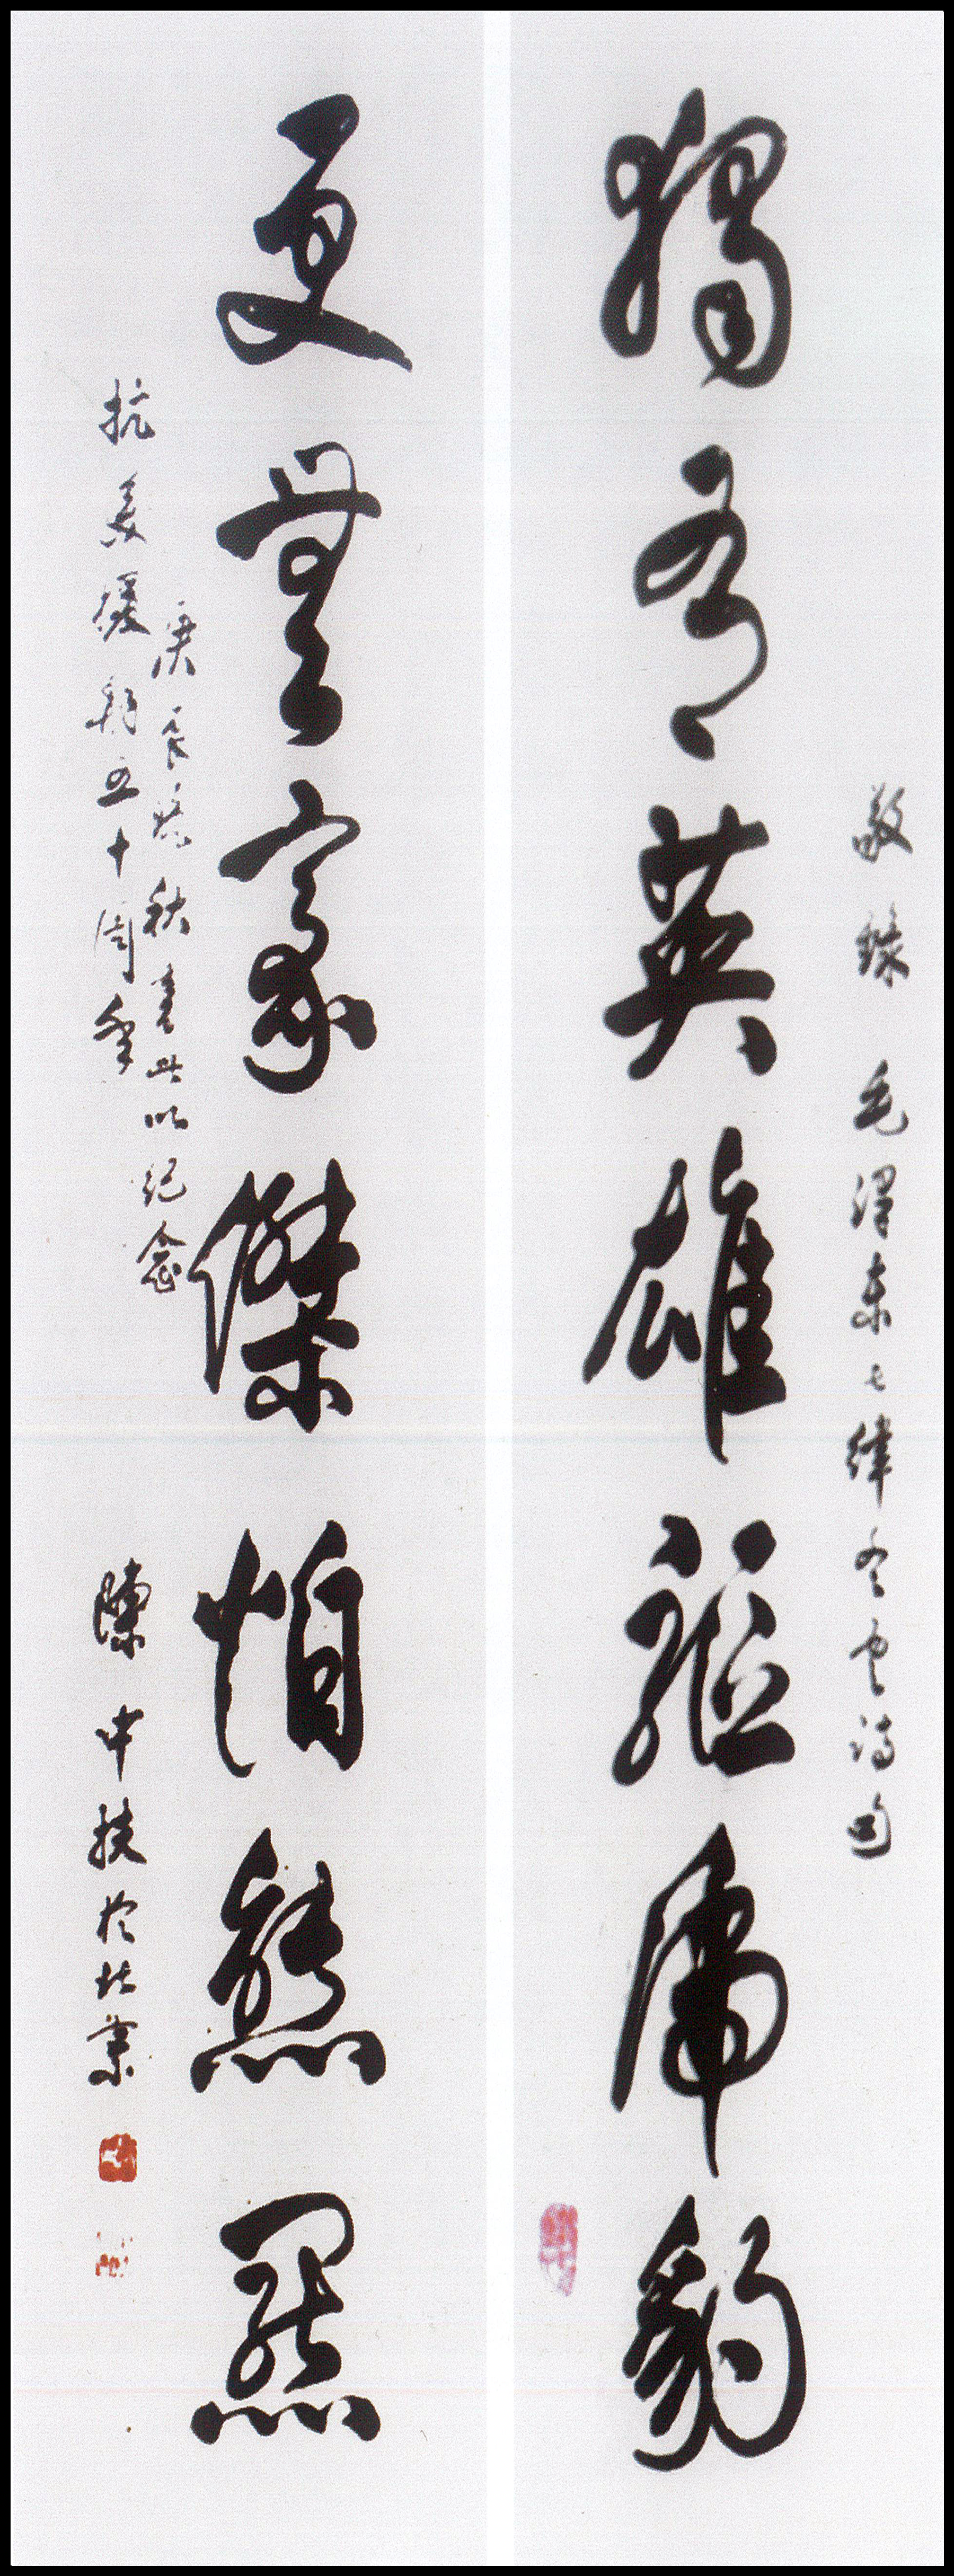 敬録 毛澤東七律冬雲詩句
獨有英雄驅虎豹
更無豪傑怕熊羆
庚辰秋書此以纪念
抗美援朝五十周年
陳中扶於北京